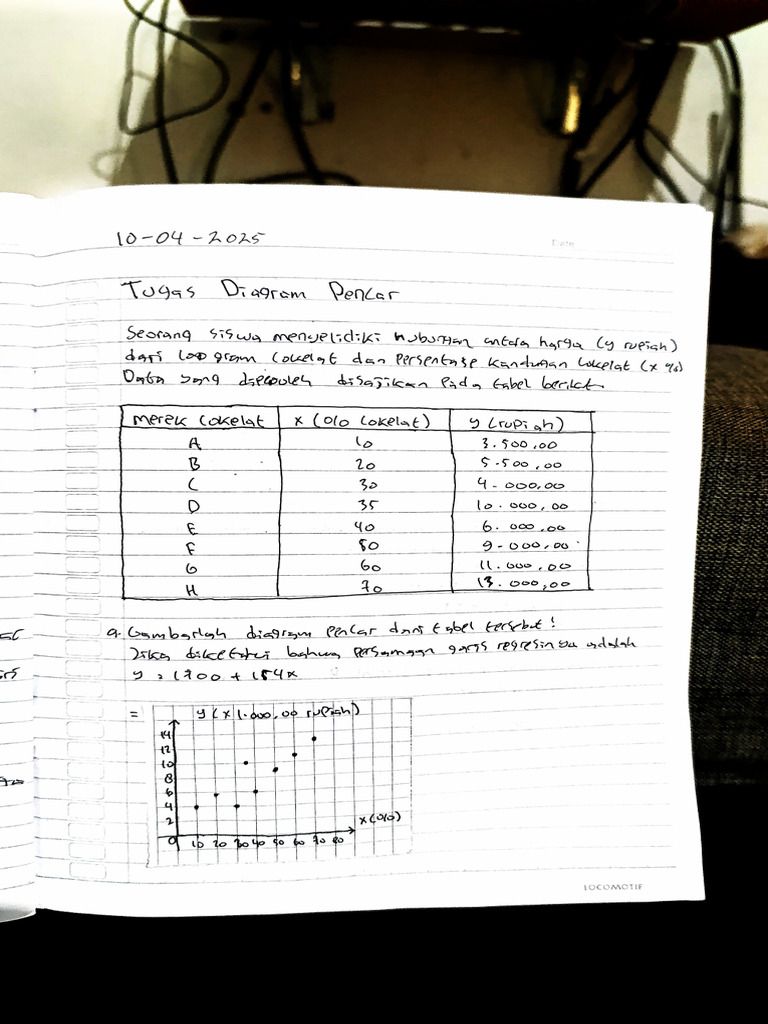 10-04-2025
Date
Tugas Diagram Pencar
Seorang siswa menyelidiki hubungan antara harga (y rupiah)
dari 100 gram cokelat dan persentase kandungan cokelat (x %)
Data yang diperoleh disajikan pada tabel berikut
Merek Cokelat x (% cokelat) y (rupiah)
A 10 3.500,00
B 20 5.500,00
C 30 4.000,00
D 35 10.000,00
E 40 6.000,00
F 50 9.000,00
G 60 11.000,00
H 70 13.000,00
a. Gambarlah diagram pencar dari tabel tersebut!
Jika diketahui bahwa persamaan garis regresinya adalah
y = 1700 + 154x
= y (x 1.000,00 rupiah)
14
12
10
8
6
4
2
x (%)
0 10 20 30 40 50 60 70 80
LOCOMOTIF